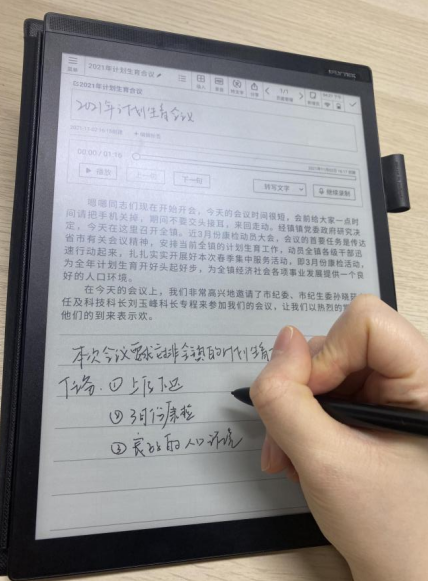 2021年计划生育会议
1/1
2021年计划生育会议
2021年计划生育会议
00:00 / 01:16
播放
上一段
下一段
转写文字
继续录制
嗯嗯同志们现在开始开会，今天的会议时间很短，会前给大家一点时
间请把手机关掉，期间不要交头接耳，来回走动。经镇镇党委政府研究决
定，今天在这里召开全镇，近3月份康检动员大会，会议的首要任务是传达
省市有关会议精神，安排当前全镇的计划生育工作，动员全镇各级干部迅
速行动起来，扎扎实实开展好本次春季集中服务活动，即3月份康检活动，
为全年计划生育开好头起好步，为全镇经济社会各项事业发展提供一个良
好的人口环境。
在今天的会议上，我们非常高兴地邀请了市纪委、市纪生委孙晓
任及科技科长刘玉峰科长专程来参加我们的会议，让我们以热烈的
他们的到来表示欢。
本次会议要求安排全镇的计划生育
任务：① 上传下达
② 3月份康检
③ 良好的人口环境